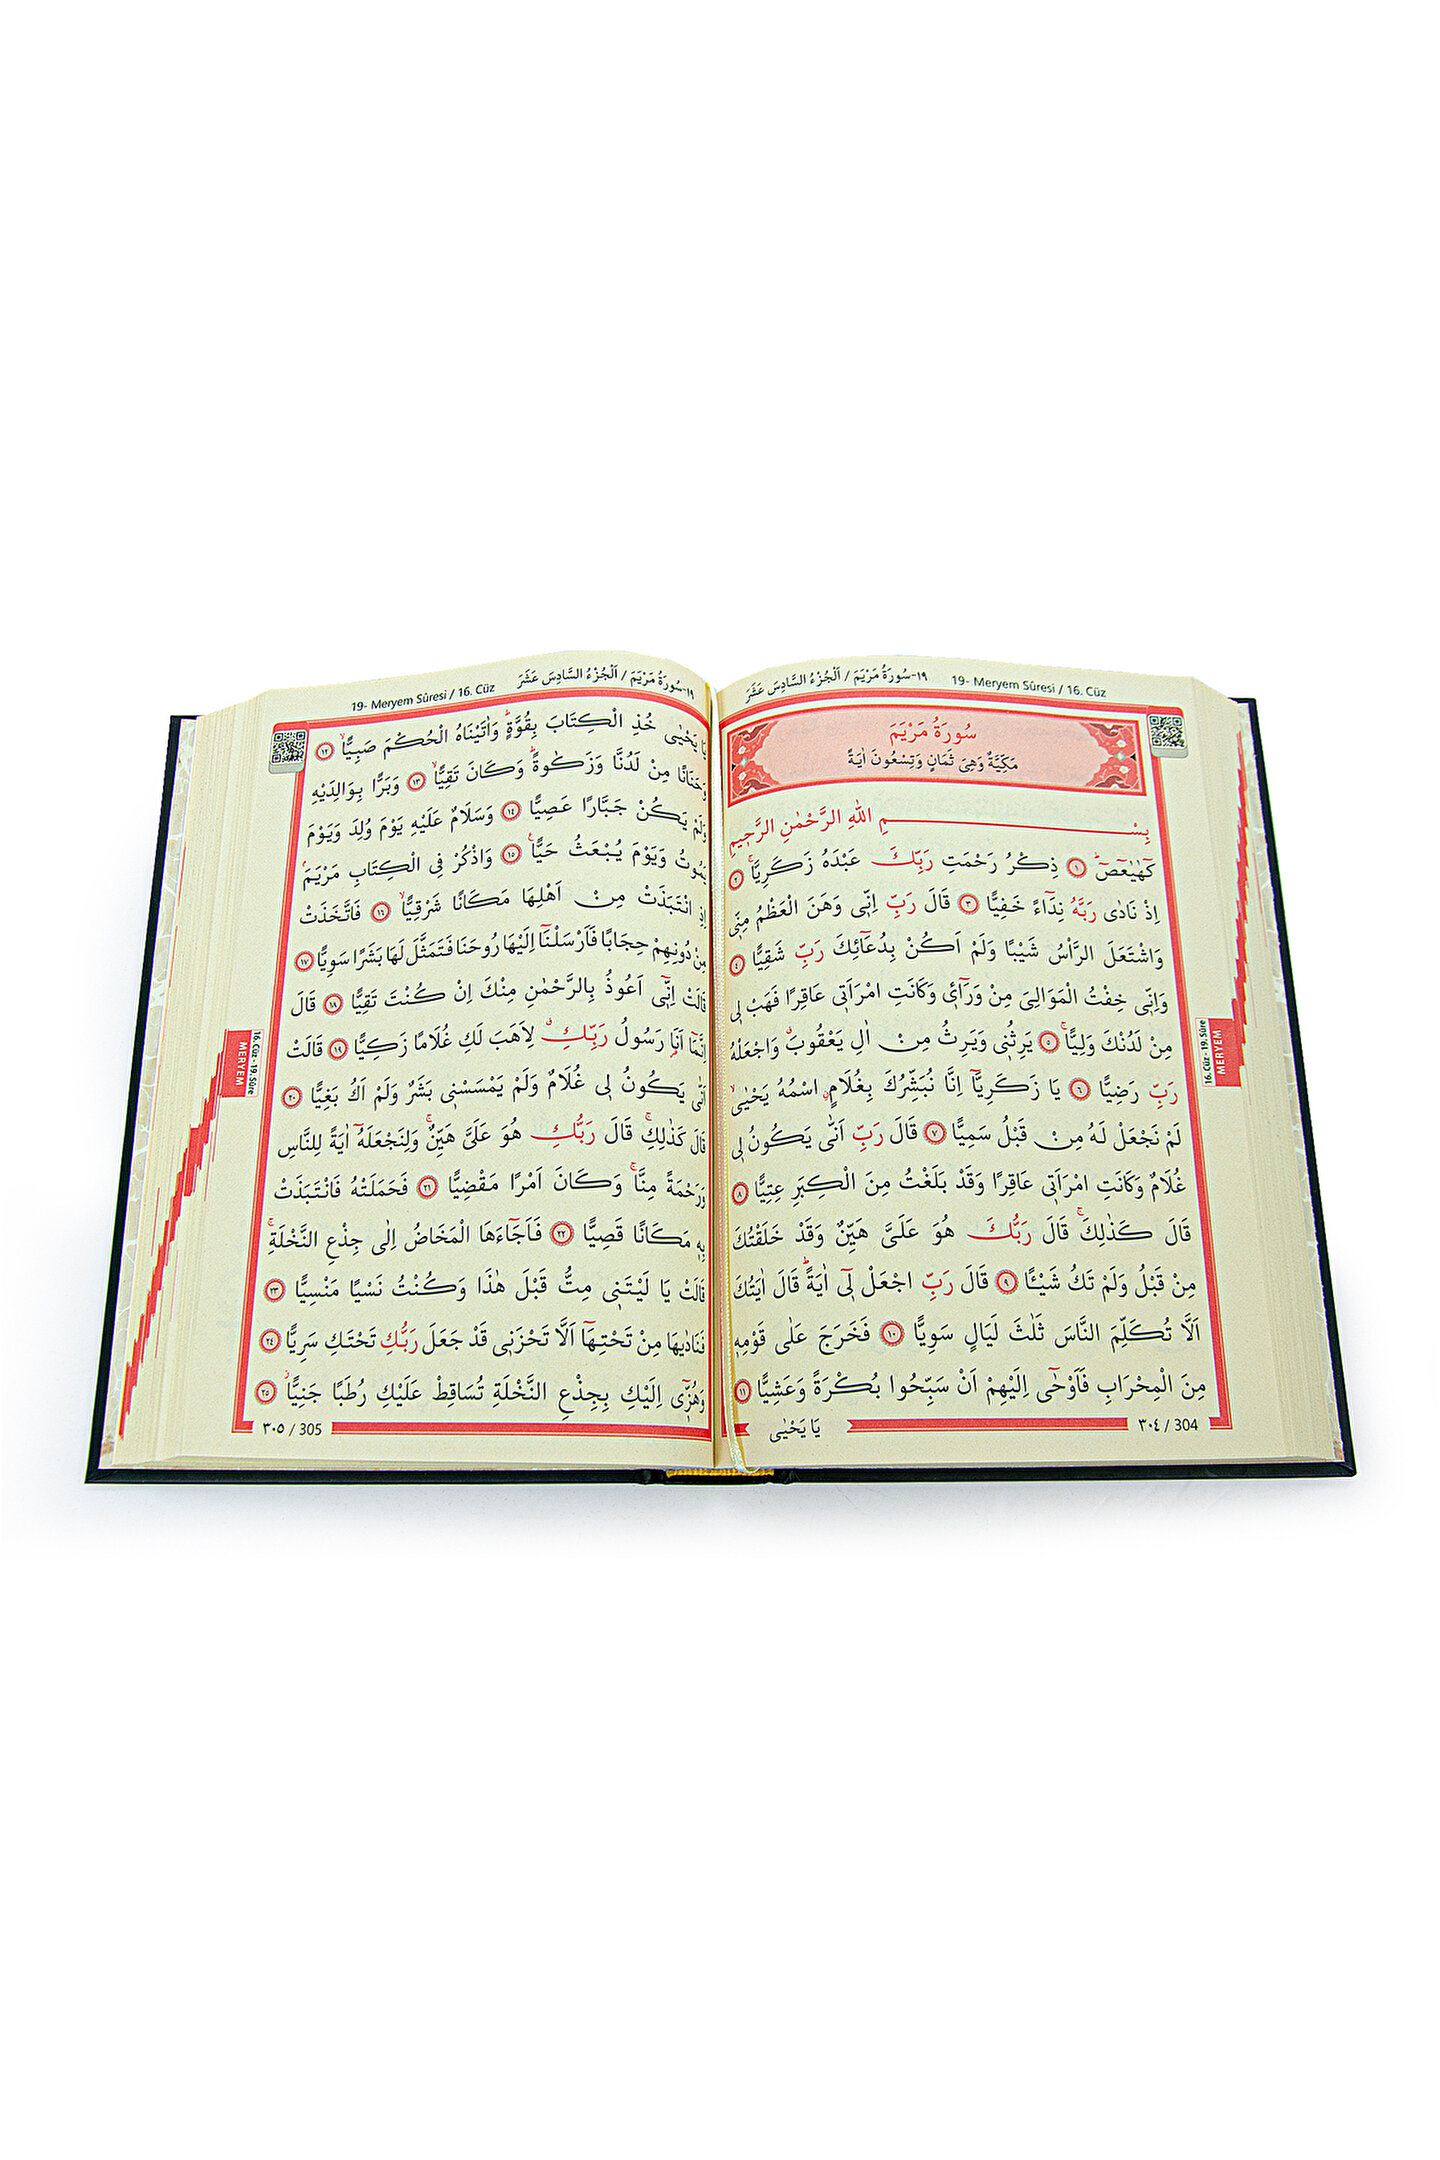 ١٩-سُورَةُ مَرْيَمَ / اَلْجُزْءُ السَّادِسَ عَشَرَ 19- Meryem Sûresi / 16. Cüz
سُورَةُ مَرْيَمَ
مَكِّيَّةٌ وَهِيَ ثَمَانٍ وَتِسْعُونَ اٰيَةً
بِسْمِ اللّٰهِ الرَّحْمٰنِ الرَّحِيمِ
كٓهٰيٰعٓصٓ ۚ ﴿١﴾ ذِكْرُ رَحْمَتِ رَبِّكَ عَبْدَهُ زَكَرِيَّا ۚ ﴿٢﴾
اِذْ نَادٰى رَبَّهُ نِدَٓاءً خَفِيًّا ﴿٣﴾ قَالَ رَبِّ اِنّ۪ي وَهَنَ الْعَظْمُ مِنّ۪ي
وَاشْتَعَلَ الرَّاْسُ شَيْبًا وَلَمْ اَكُنْ بِدُعَٓائِكَ رَبِّ شَقِيًّا ﴿٤﴾
وَاِنّ۪ي خِفْتُ الْمَوَالِيَ مِنْ وَرَٓاء۪ي وَكَانَتِ امْرَاَت۪ي عَاقِرًا فَهَبْ ل۪ي
مِنْ لَدُنْكَ وَلِيًّا ۙ ﴿٥﴾ يَرِثُن۪ي وَيَرِثُ مِنْ اٰلِ يَعْقُوبَۗ وَاجْعَلْهُ
رَبِّ رَضِيًّا ﴿٦﴾ يَا زَكَرِيَّٓا اِنَّا نُبَشِّرُكَ بِغُلَامٍۨ اسْمُهُ يَحْيٰىۙ
لَمْ نَجْعَلْ لَهُ مِنْ قَبْلُ سَمِيًّا ﴿٧﴾ قَالَ رَبِّ اَنّٰى يَكُونُ ل۪ي
غُلَامٌ وَكَانَتِ امْرَاَت۪ي عَاقِرًا وَقَدْ بَلَغْتُ مِنَ الْكِبَرِ عِتِيًّا ﴿٨﴾
قَالَ كَذٰلِكَۚ قَالَ رَبُّكَ هُوَ عَلَيَّ هَيِّنٌ وَقَدْ خَلَقْتُكَ
مِنْ قَبْلُ وَلَمْ تَكُ شَيْـًٔا ﴿٩﴾ قَالَ رَبِّ اجْعَلْ ل۪ٓي اٰيَةًۜ قَالَ اٰيَتُكَ
اَلَّا تُكَلِّمَ النَّاسَ ثَلٰثَ لَيَالٍ سَوِيًّا ﴿١٠﴾ فَخَرَجَ عَلٰى قَوْمِه۪
مِنَ الْمِحْرَابِ فَاَوْحٰٓى اِلَيْهِمْ اَنْ سَبِّحُوا بُكْرَةً وَعَشِيًّا ﴿١١﴾
يَا يَحْيٰى
٣٠٤ / 304
16. Cüz - 19. Sûre
MERYEM
١٩-سُورَةُ مَرْيَمَ / اَلْجُزْءُ السَّادِسَ عَشَرَ 19- Meryem Sûresi / 16. Cüz
يَا يَحْيٰى خُذِ الْكِتَابَ بِقُوَّةٍۜ وَاٰتَيْنَاهُ الْحُكْمَ صَبِيًّاۙ ﴿١٢﴾
وَحَنَانًا مِنْ لَدُنَّا وَزَكٰوةًۜ وَكَانَ تَقِيًّاۙ ﴿١٣﴾ وَبَرًّا بِوَالِدَيْهِ
وَلَمْ يَكُنْ جَبَّارًا عَصِيًّا ﴿١٤﴾ وَسَلَامٌ عَلَيْهِ يَوْمَ وُلِدَ وَيَوْمَ
يَمُوتُ وَيَوْمَ يُبْعَثُ حَيًّا۟ ﴿١٥﴾ وَاذْكُرْ فِي الْكِتَابِ مَرْيَمَۢ
اِذِ انْتَبَذَتْ مِنْ اَهْلِهَا مَكَانًا شَرْقِيًّاۙ ﴿١٦﴾ فَاتَّخَذَتْ
مِنْ دُونِهِمْ حِجَابًا فَاَرْسَلْنَٓا اِلَيْهَا رُوحَنَا فَتَمَثَّلَ لَهَا بَشَرًا سَوِيًّا ﴿١٧﴾
قَالَتْ اِنّ۪ٓي اَعُوذُ بِالرَّحْمٰنِ مِنْكَ اِنْ كُنْتَ تَقِيًّا ﴿١٨﴾ قَالَ
اِنَّمَٓا اَنَا۬ رَسُولُ رَبِّكِۗ لِاَهَبَ لَكِ غُلَامًا زَكِيًّا ﴿١٩﴾ قَالَتْ
اَنّٰى يَكُونُ ل۪ي غُلَامٌ وَلَمْ يَمْسَسْن۪ي بَشَرٌ وَلَمْ اَكُ بَغِيًّا ﴿٢٠﴾
قَالَ كَذٰلِكِۚ قَالَ رَبُّكِ هُوَ عَلَيَّ هَيِّنٌۚ وَلِنَجْعَلَهُٓ اٰيَةً لِلنَّاسِ
وَرَحْمَةً مِنَّاۚ وَكَانَ اَمْرًا مَقْضِيًّا ﴿٢١﴾ فَحَمَلَتْهُ فَانْتَبَذَتْ
بِه۪ مَكَانًا قَصِيًّا ﴿٢٢﴾ فَاَجَٓاءَهَا الْمَخَاضُ اِلٰى جِذْعِ النَّخْلَةِۚ
قَالَتْ يَا لَيْتَن۪ي مِتُّ قَبْلَ هٰذَا وَكُنْتُ نَسْيًا مَنْسِيًّا ﴿٢٣﴾
فَنَادٰيهَا مِنْ تَحْتِهَٓا اَلَّا تَحْزَن۪ي قَدْ جَعَلَ رَبُّكِ تَحْتَكِ سَرِيًّا ﴿٢٤﴾
وَهُزّ۪ٓي اِلَيْكِ بِجِذْعِ النَّخْلَةِ تُسَاقِطْ عَلَيْكِ رُطَبًا جَنِيًّاۘ ﴿٢٥﴾
٣٠٥ / 305
16. Cüz - 19. Sûre
MERYEM